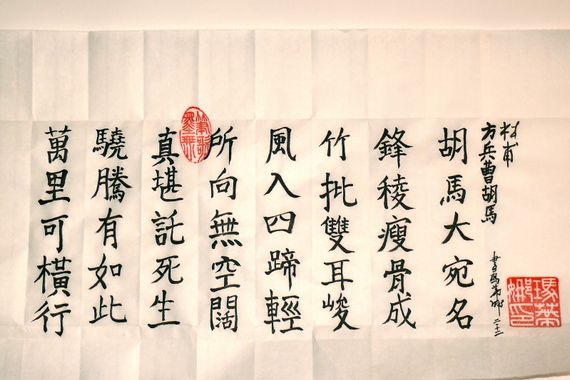 杜甫
方兵曹胡馬
胡馬大宛名
鋒稜瘦骨成
竹批雙耳峻
風入四蹄輕
所向無空闊
真堪託死生
驍騰有如此
萬里可橫行